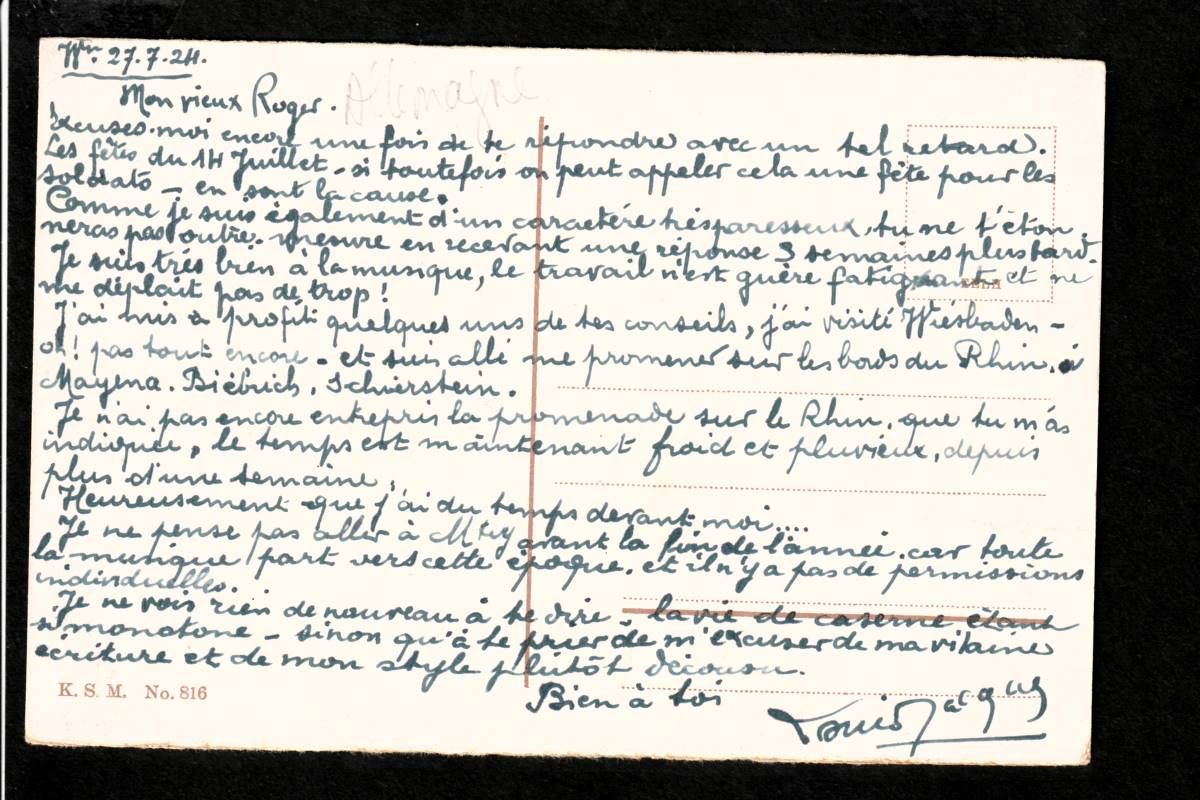 Wn. 27.7.24.
Allemagne
Mon vieux Roger.
Excuses-moi encore une fois de te répondre avec un tel retard.
Les fêtes du 14 Juillet - si toutefois on peut appeler cela une fête pour les
soldats - en sont la cause.
Comme je suis également d'un caractère très paresseux, tu ne t'éton-
neras pas outre-mesure en recevant une réponse 3 semaines plus tard.
Je suis très bien à la musique, le travail n'est guère fatigant et ne
me déplait pas de trop!
J'ai mis à profit quelques uns de tes conseils, j'ai visité Wiesbaden -
oh! pas tout encore - et suis allé me promener sur les bords du Rhin, à
Mayena. Biébrich, Schierstein.
Je n'ai pas encore entrepris la promenade sur le Rhin, que tu m'as
indiquée, le temps est maintenant froid et pluvieux, depuis
plus d'une semaine,
Heureusement que j'ai du temps devant moi....
Je ne pense pas aller à avant la fin de l'année, car toute
la musique part vers cette époque, et il n'y a pas de permissions
individuelles.
Je ne vois rien de nouveau à te dire - la vie de caserne étant
si monotone - sinon qu'à te prier de m'excuser de ma vilaine
écriture et de mon style plutôt décousu.
Bien à toi
Louis
K. S. M. No. 816